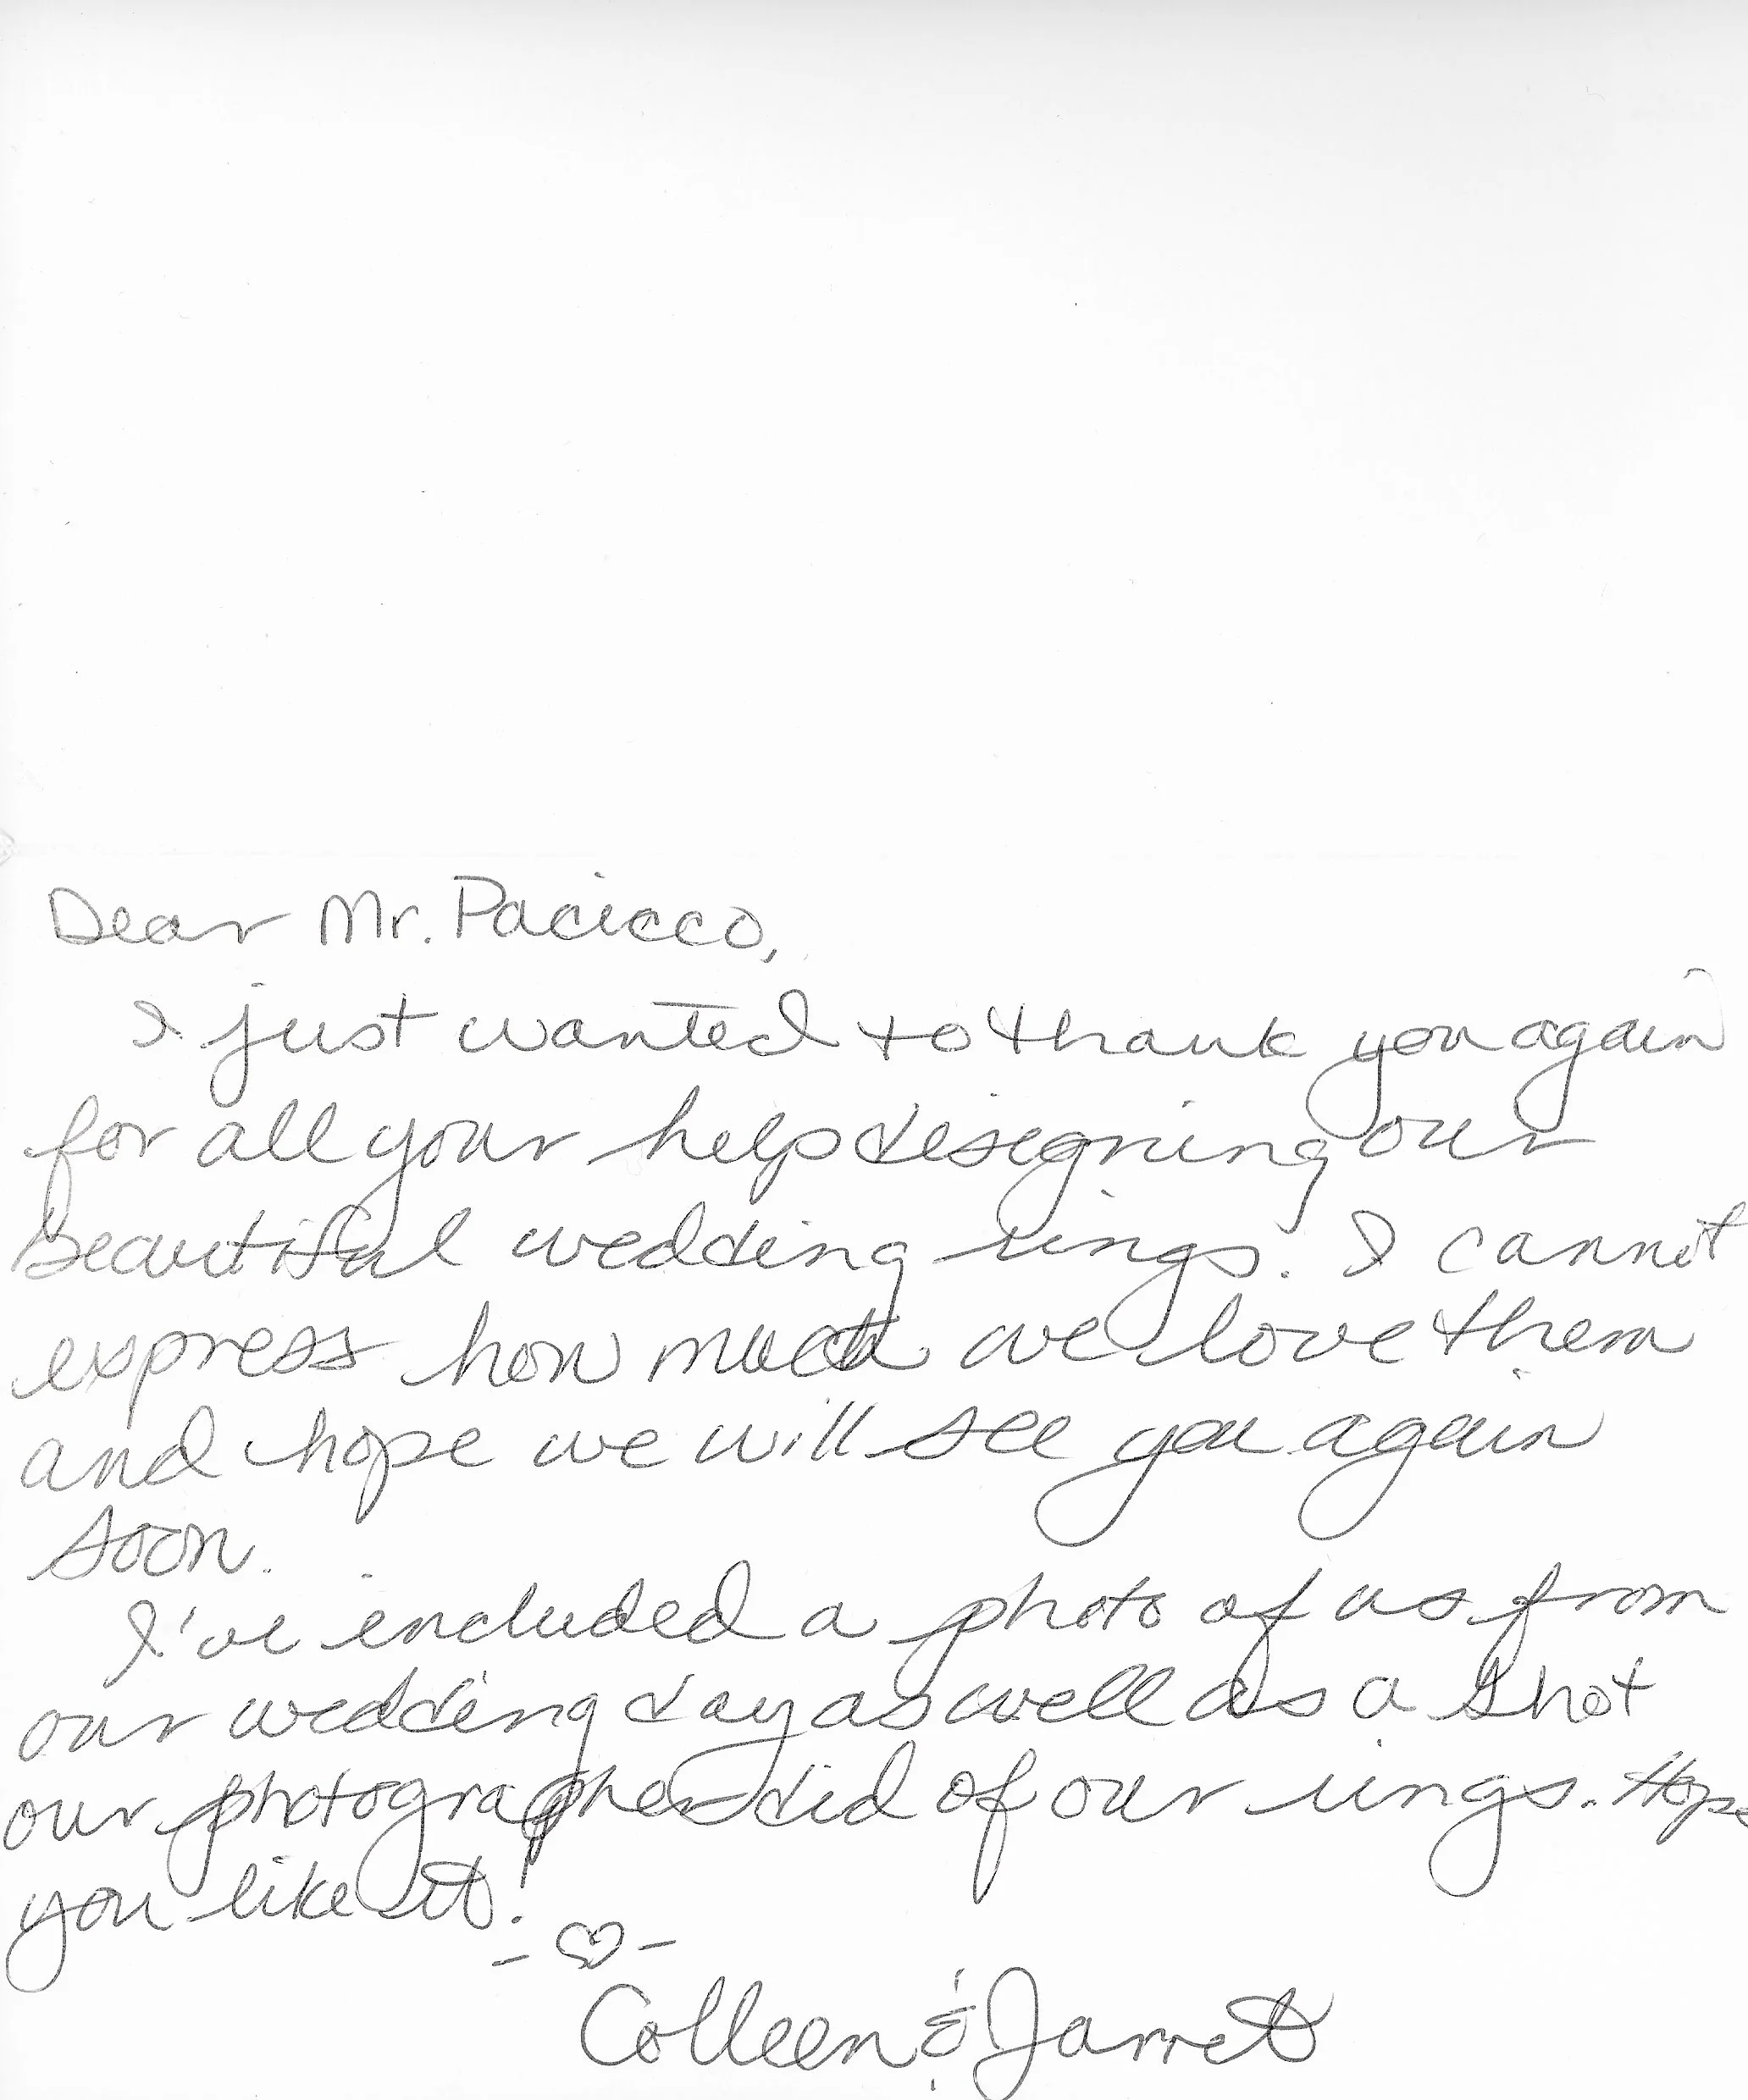 Dear Mr. Pacicco,
I just wanted to thank you again
for all your help designing our
beautiful wedding rings. I cannot
express how much we love them
and hope we will see you again
soon.
I've included a photo of us from
our wedding day as well as a shot
our photographer did of our rings. Hope
you like it!
-♡-
Colleen & Jarret